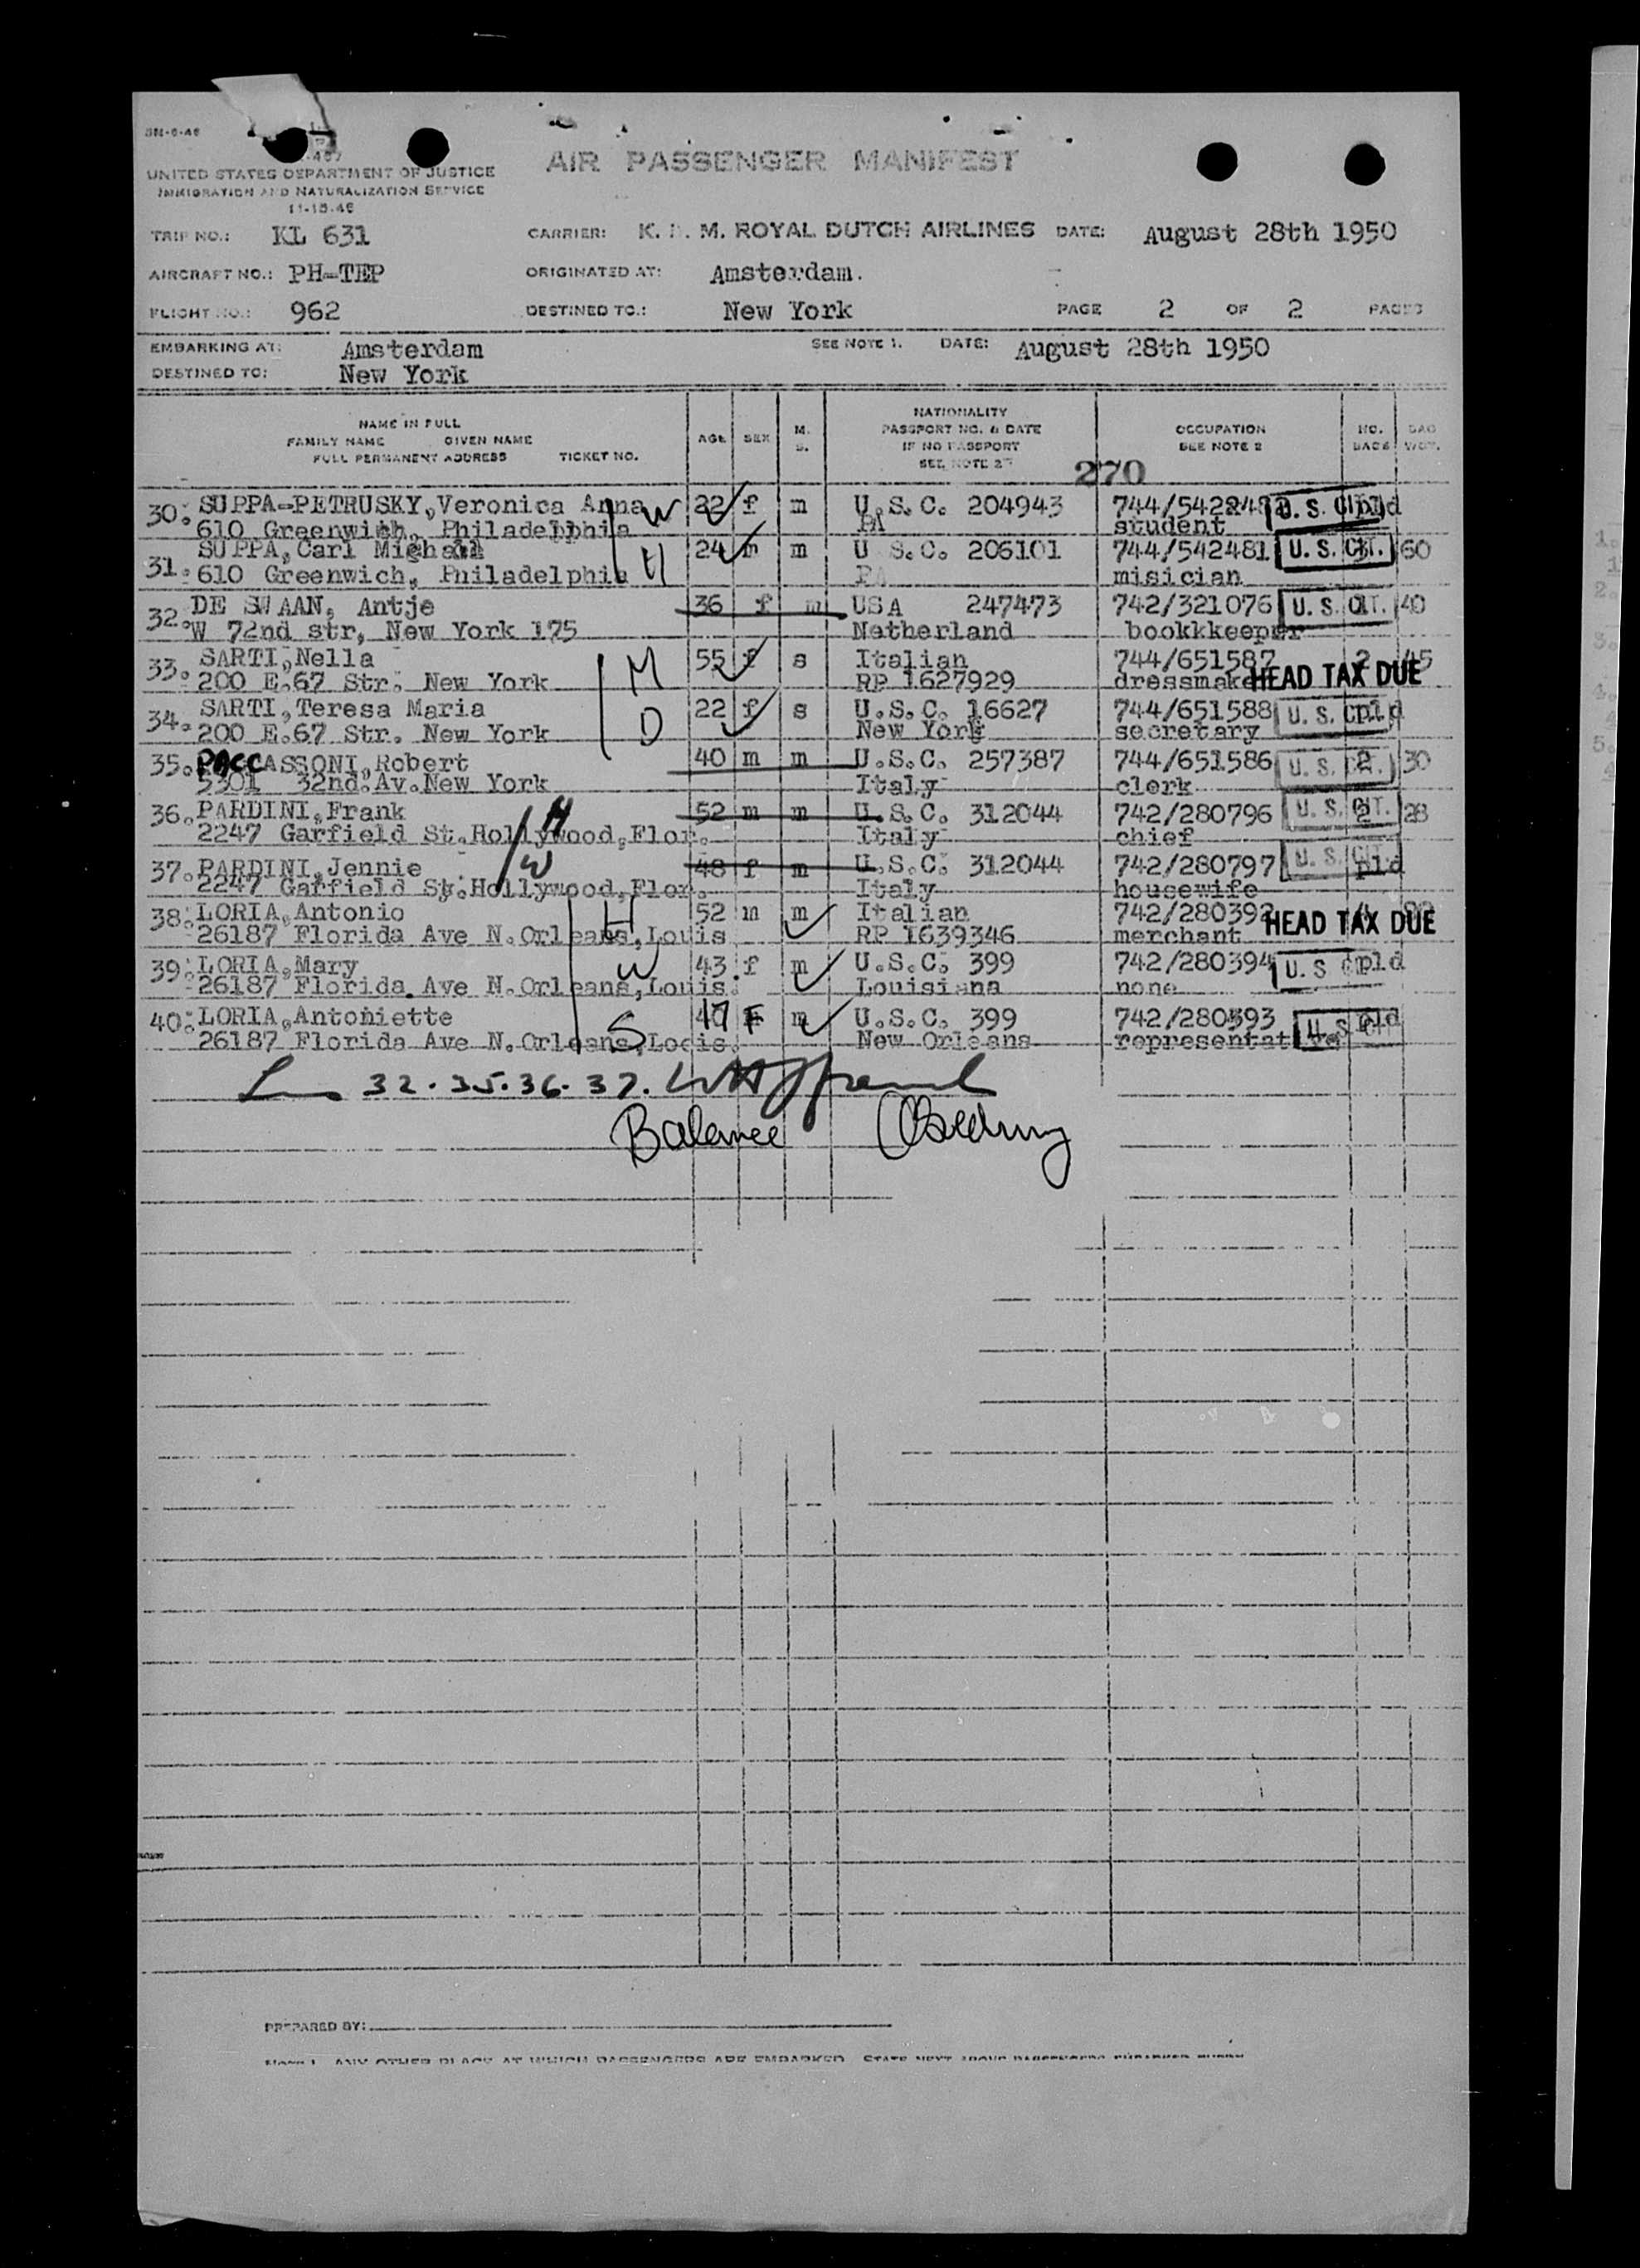 AIR PASSENGER MANIFEST
UNITED STATES DEPARTMENT OF JUSTICE
IMMIGRATION AND NATURALIZATION SERVICE
11-15-46
TRIP NO.: KL 631 CARRIER: K. L. M. ROYAL DUTCH AIRLINES DATE: August 28th 1950
AIRCRAFT NO.: PH-TEP ORIGINATED AT: Amsterdam.
FLIGHT NO.: 962 DESTINED TO.: New York PAGE 2 OF 2 PAGES
EMBARKING AT: Amsterdam SEE NOTE 1. DATE: August 28th 1950
DESTINED TO: New York
NAME IN FULL
FAMILY NAME GIVEN NAME
FULL PERMANENT ADDRESS TICKET NO.
AGE SEX M. S.
NATIONALITY
PASSPORT NO. & DATE
IF NO PASSPORT
SEE NOTE 2
OCCUPATION
SEE NOTE 2
NO. BAGS BAG WGT.
270
30. SUPPA-PETRUSKY, Veronica Anna W 22 f m U.S.C. 204943 U.S. CIT. pld
610 Greenwich, Philadelphia PA student
31. SUPPA, Carl Michael H 24 m m U S.C. 206101 744/542481 U.S. CIT. 60
610 Greenwich, Philadelphia PA misician
32. DE SWAAN, Antje 36 f m USA 247473 742/321076 U.S. CIT. 40
W 72nd str, New York 175 Netherland bookkkeeper
33. SARTI, Nella M 55 f s Italian 744/651587 2 45
200 E.67 Str. New York RP 1627929 dressmaker HEAD TAX DUE
34. SARTI, Teresa Maria D 22 f s U.S.C. 16627 744/651588 U.S. CIT. pld
200 E.67 Str. New York New York secretary
35. PACCASSONI, Robert 40 m m U.S.C. 257387 744/651586 U.S. CIT. 2 30
5301 32nd.Av.New York Italy clerk
36. PARDINI, Frank H 52 m m U.S.C. 312044 742/280796 U.S. CIT. 2 28
2247 Garfield St.Hollywood,Flor. Italy chief
37. PARDINI, Jennie W 48 f m U.S.C. 312044 742/280797 U.S. CIT. pld
2247 Garfield St.Hollywood,Flor. Italy housewife
38. LORIA, Antonio H 52 m m Italian 742/280392
26187 Florida Ave N.Orleans,Louis RP 1639346 merchant HEAD TAX DUE
39. LORIA, Mary W 43 f m U.S.C. 399 742/280394 U.S. pld
26187 Florida Ave N.Orleans,Louis. Louisiana none
40. LORIA, Antoniette S 17 F m U.S.C. 399 742/280393 U.S. pld
26187 Florida Ave N.Orleans,Louis. New Orleans representative
32. 35. 36. 37.
Balance
PREPARED BY:
NOTE 1. ANY OTHER PLACE AT WHICH PASSENGERS ARE EMBARKED